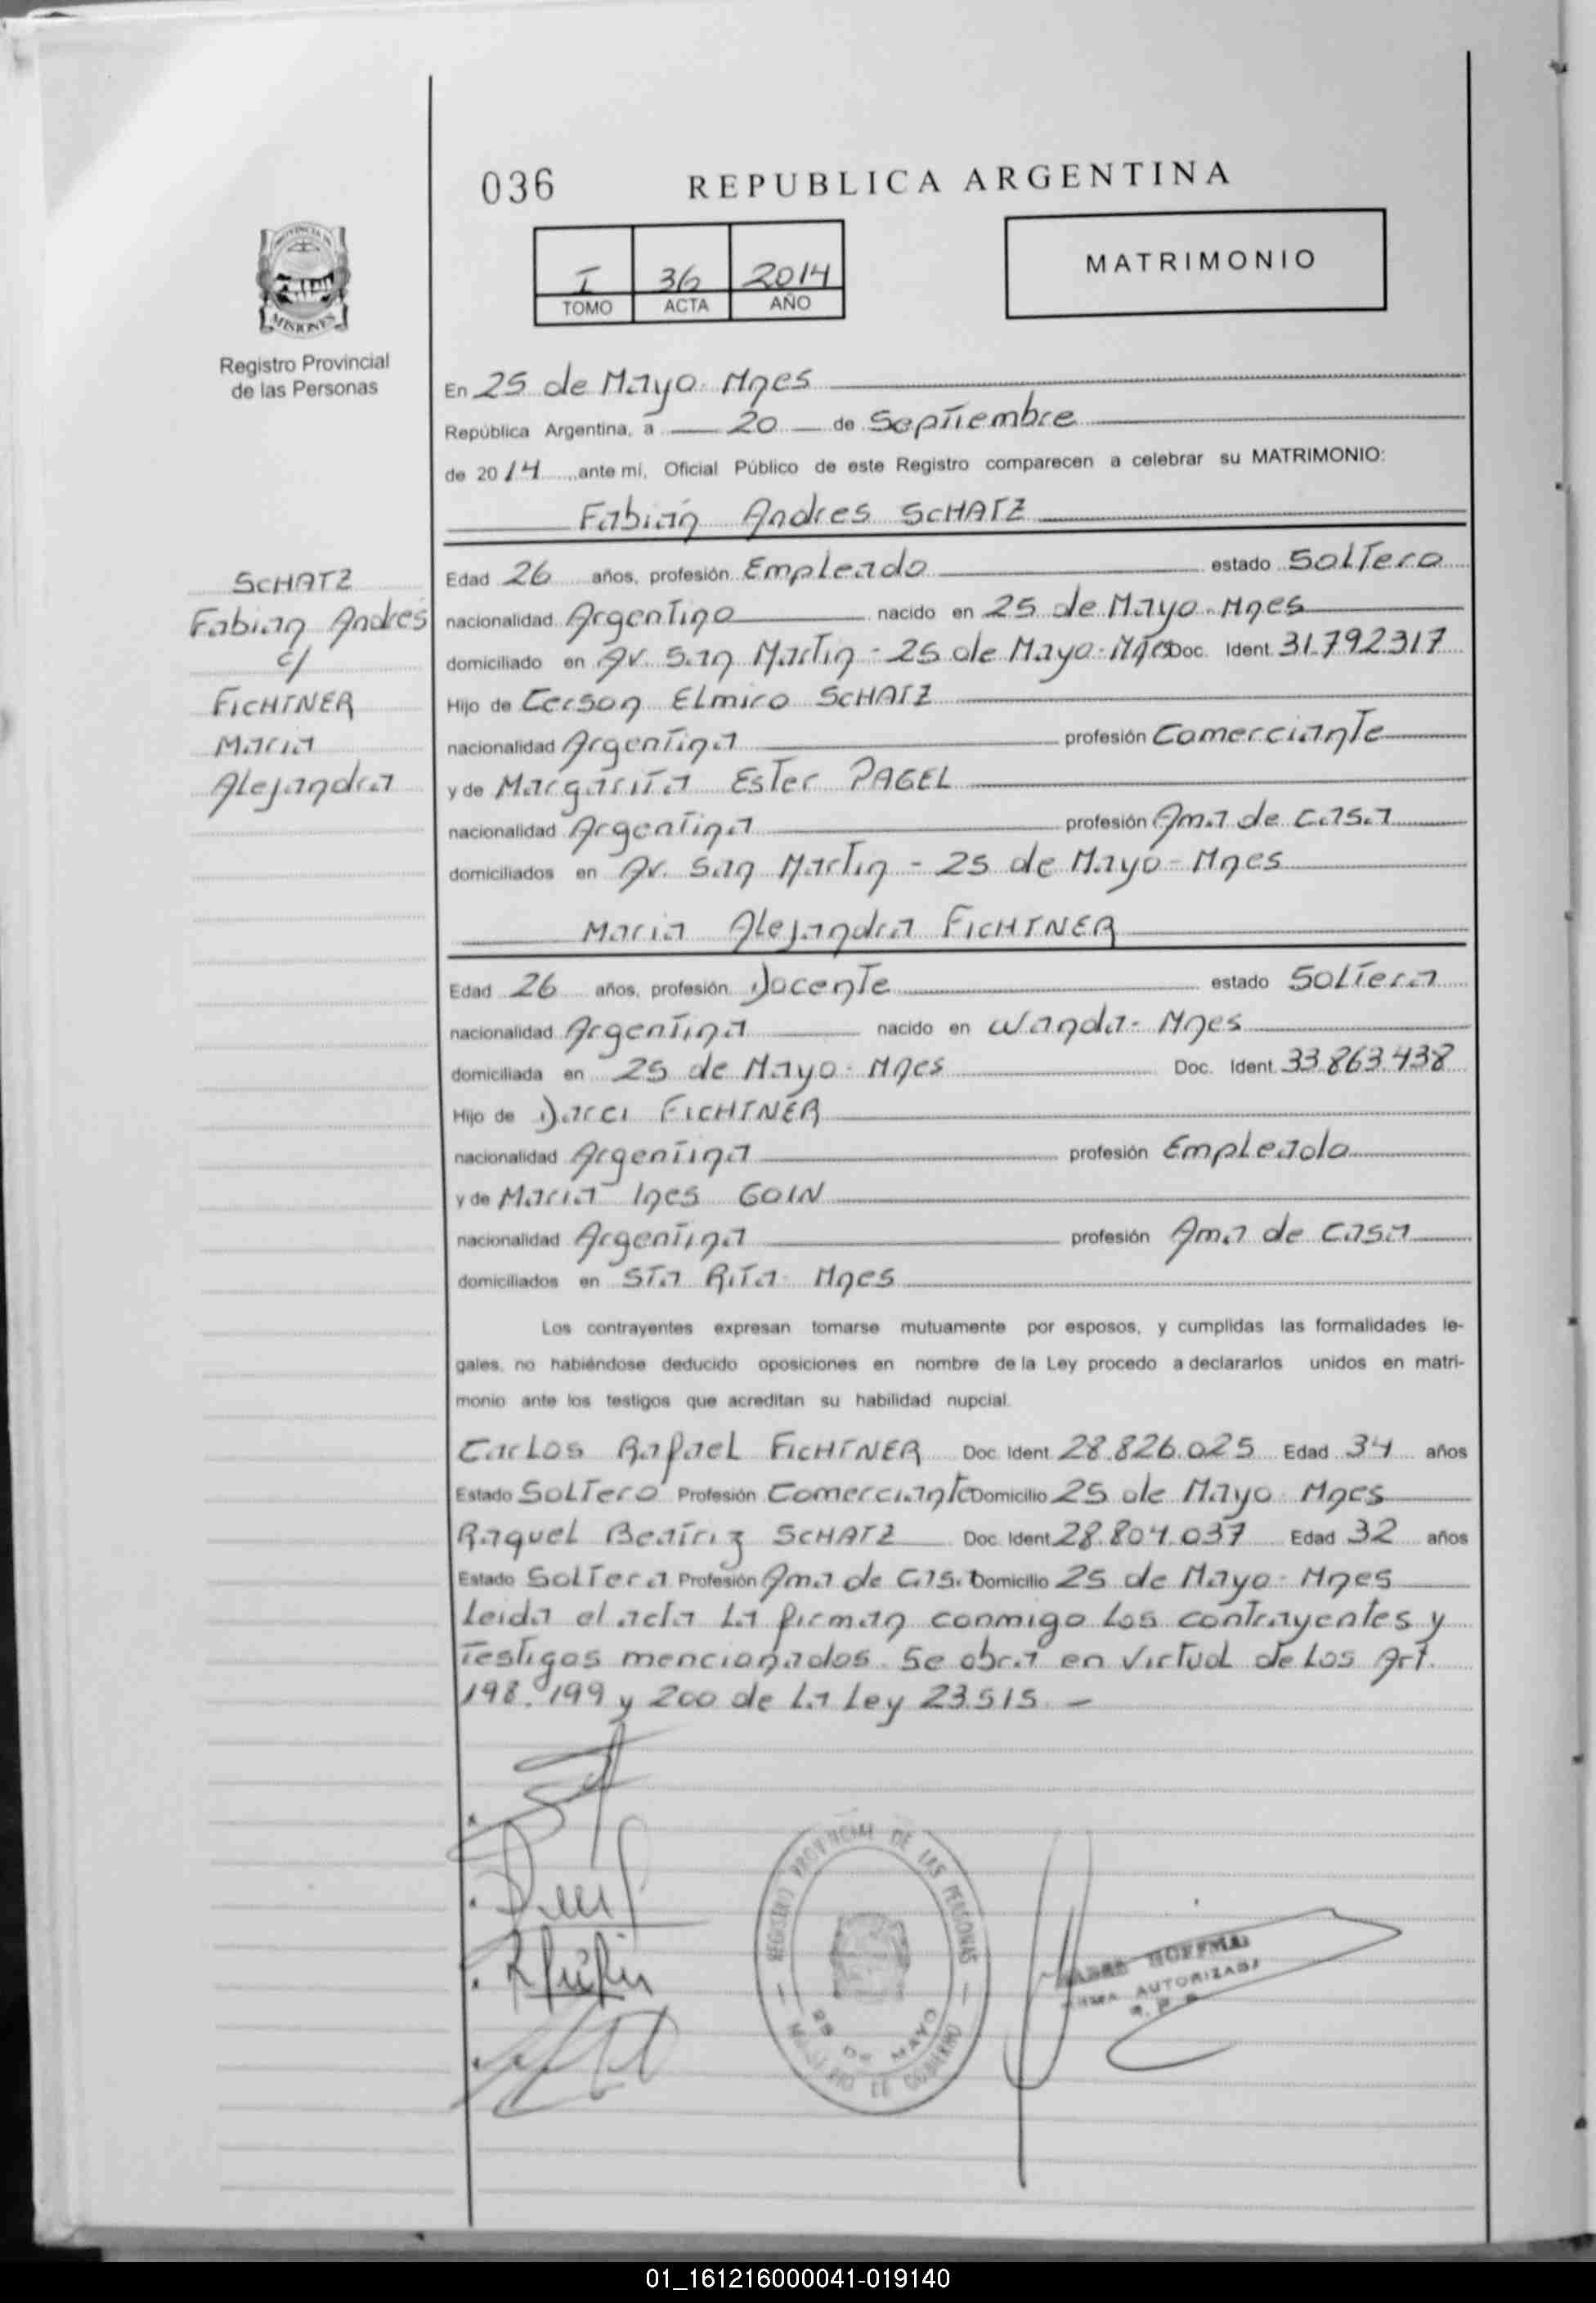 036 REPUBLICA ARGENTINA
I 36 2014
TOMO ACTA AÑO
MATRIMONIO
MISIONES
Registro Provincial
de las Personas
En 25 de Mayo - Mnes
República Argentina, a 20 de Septiembre
de 2014 ante mi, Oficial Público de este Registro comparecen a celebrar su MATRIMONIO:
Fabián Andres SCHATZ
SCHATZ
Fabian Andres
c/
FICHTNER
Maria
Alejandra
Edad 26 años, profesión Empleado estado Soltero
nacionalidad Argentino nacido en 25 de Mayo - Mnes
domiciliado en Av. San Martin - 25 de Mayo - Mnes Doc. Ident. 31.792.317
Hijo de Gerson Elmiro SCHATZ
nacionalidad Argentina profesión Comerciante
y de Margarita Ester PAGEL
nacionalidad Argentina profesión Ama de Casa
domiciliados en Av. San Martin - 25 de Mayo - Mnes
Maria Alejandra FICHTNER
Edad 26 años, profesión Docente estado Soltera
nacionalidad Argentina nacido en Wanda - Mnes
domiciliada en 25 de Mayo - Mnes Doc. Ident. 33.863.438
Hijo de Darci FICHTNER
nacionalidad Argentina profesión Empleado
y de Maria Ines GOIN
nacionalidad Argentina profesión Ama de Casa
domiciliados en Sta Rita - Mnes
Los contrayentes expresan tomarse mutuamente por esposos, y cumplidas las formalidades le-
gales, no habiéndose deducido oposiciones en nombre de la Ley procedo a declararlos unidos en matri-
monio ante los testigos que acreditan su habilidad nupcial.
Carlos Rafael FICHTNER Doc. Ident. 28.826.025 Edad 34 años
Estado Soltero Profesión Comerciante Domicilio 25 de Mayo - Mnes
Raquel Beatriz SCHATZ Doc. Ident. 28.804.037 Edad 32 años
Estado Soltera Profesión Ama de Casa Domicilio 25 de Mayo - Mnes
Leida el acta La firman conmigo Los contrayentes y
Testigos mencionados. Se obra en Virtud de Los Art.
198. 199 y 200 de La Ley 23.515. -
REGISTRO PROVINCIAL DE LAS PERSONAS
25 DE MAYO
DE GOBIERNO
AUTORIZADA
01_161216000041-019140